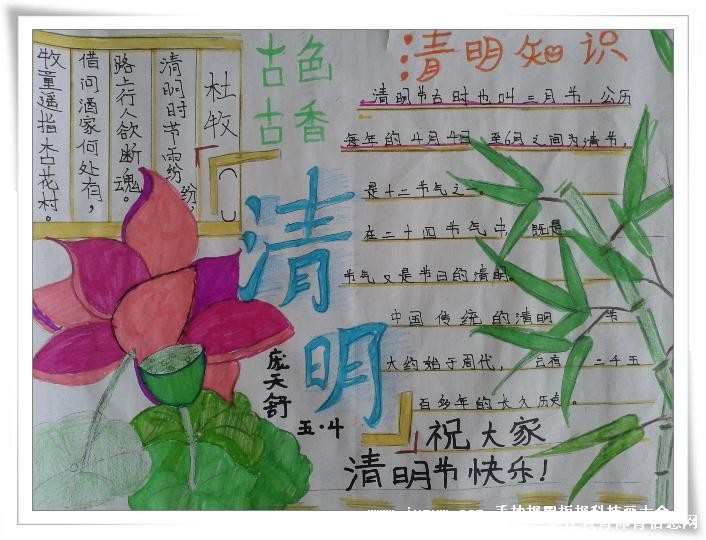 杜牧
清明时节雨纷纷，
路上行人欲断魂。
借问酒家何处有，
牧童遥指杏花村。
古色
古香
清明
庞天舒
五·4
清明知识
清明节古时也叫三月节，公历
每年的4月4日至6日之间为清节，
是十二节气之一。
在二十四节气中，既是
节气又是节日的清明。
中国传统的清明 节
大约始于周代， 二千五
百多年的长久历史。
祝大家
清明节快乐！